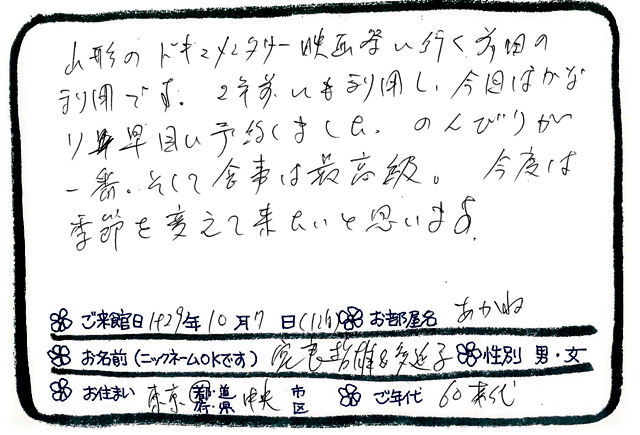 山形のドキュメンタリー映画祭に行く前日の
利用です。2年前にも利用し、今回はかな
り早目に予約しました。のんびりが
一番。そして食事は最高級。今度は
季節を変えて来たいと思います。
ご来館日 H29年10月7日(1泊) お部屋名 あかね
お名前(ニックネームOKです) 性別 男・女
お住まい 東京 都・道・府・県 中央 市・区 ご年代 60才代